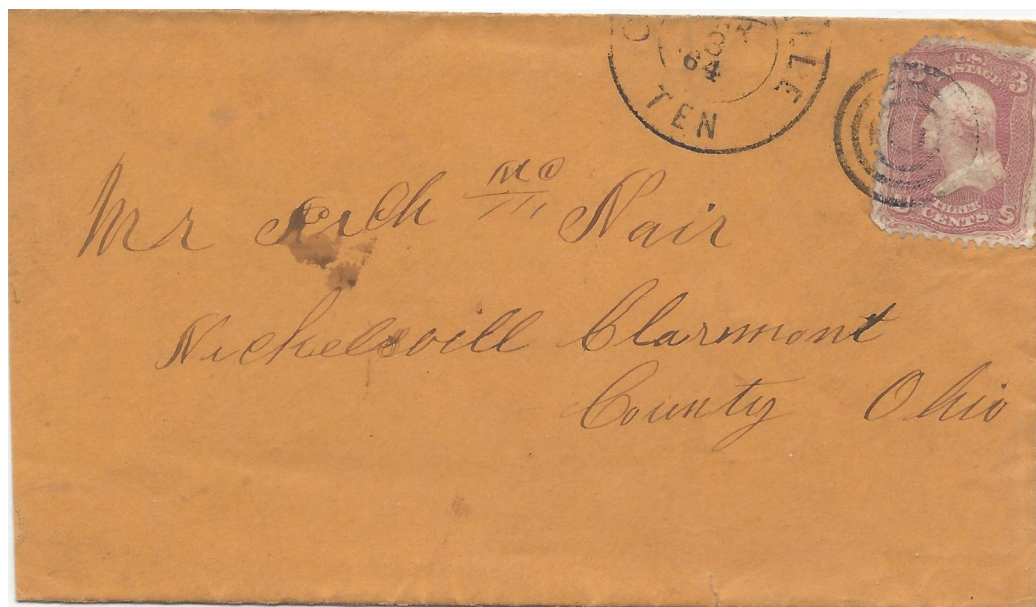 64
TEN
U.S. POSTAGE
3
THREE
CENTS
Mr Arch Mc Nair
Nickelsvill Clarmont
County Ohio